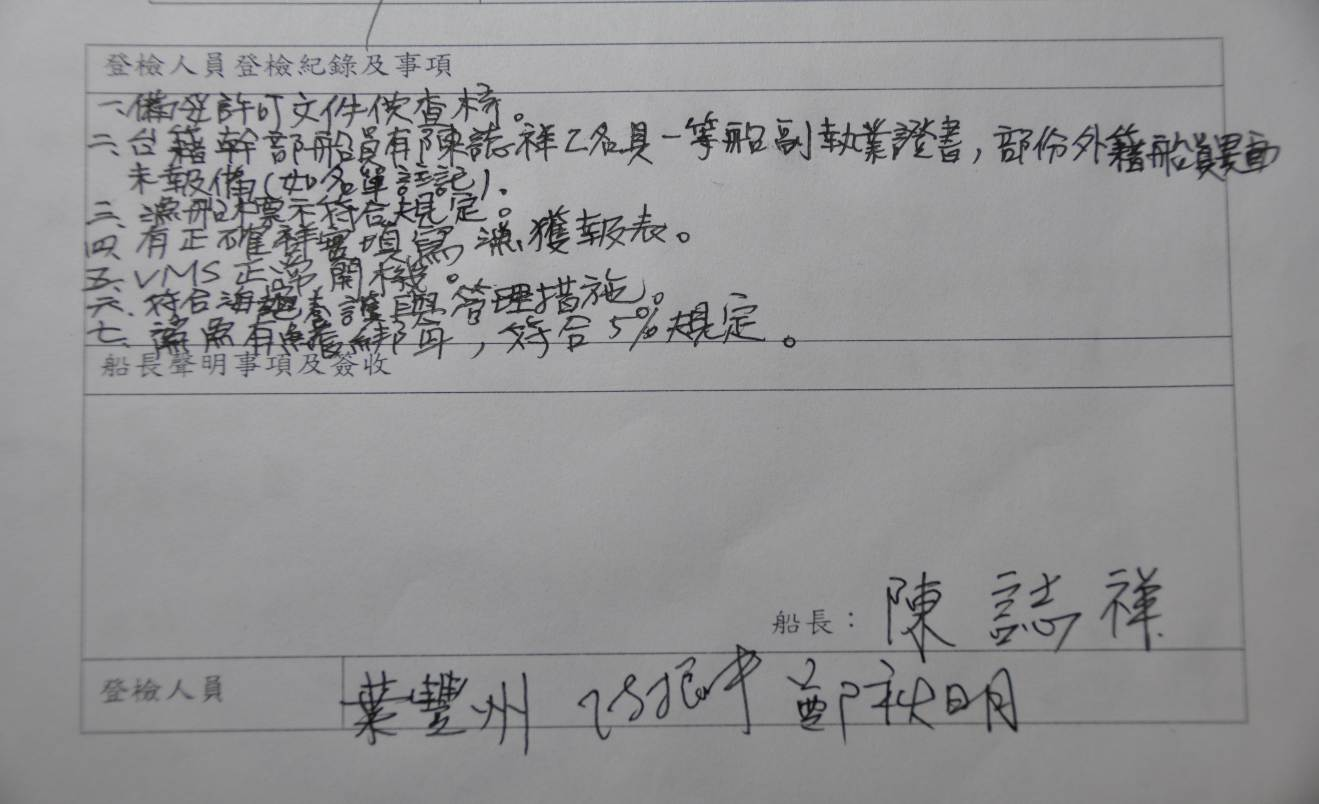 登檢人員登檢紀錄及事項
一、備妥許可文件供查核。
二、台籍幹部船員有陳誌祥乙名具一等船副執業證書,部份外籍船員異動
未報備(如名單註記)。
三、漁船標示符合規定。
四、有正確詳實填寫漁獲報表。
五、VMS正常開機。
六、符合海龜養護與管理措施。
七、鯊魚有鰭綁身,符合5%規定。
船長聲明事項及簽收
船長:陳誌祥
登檢人員 葉豐州 鄭秋明